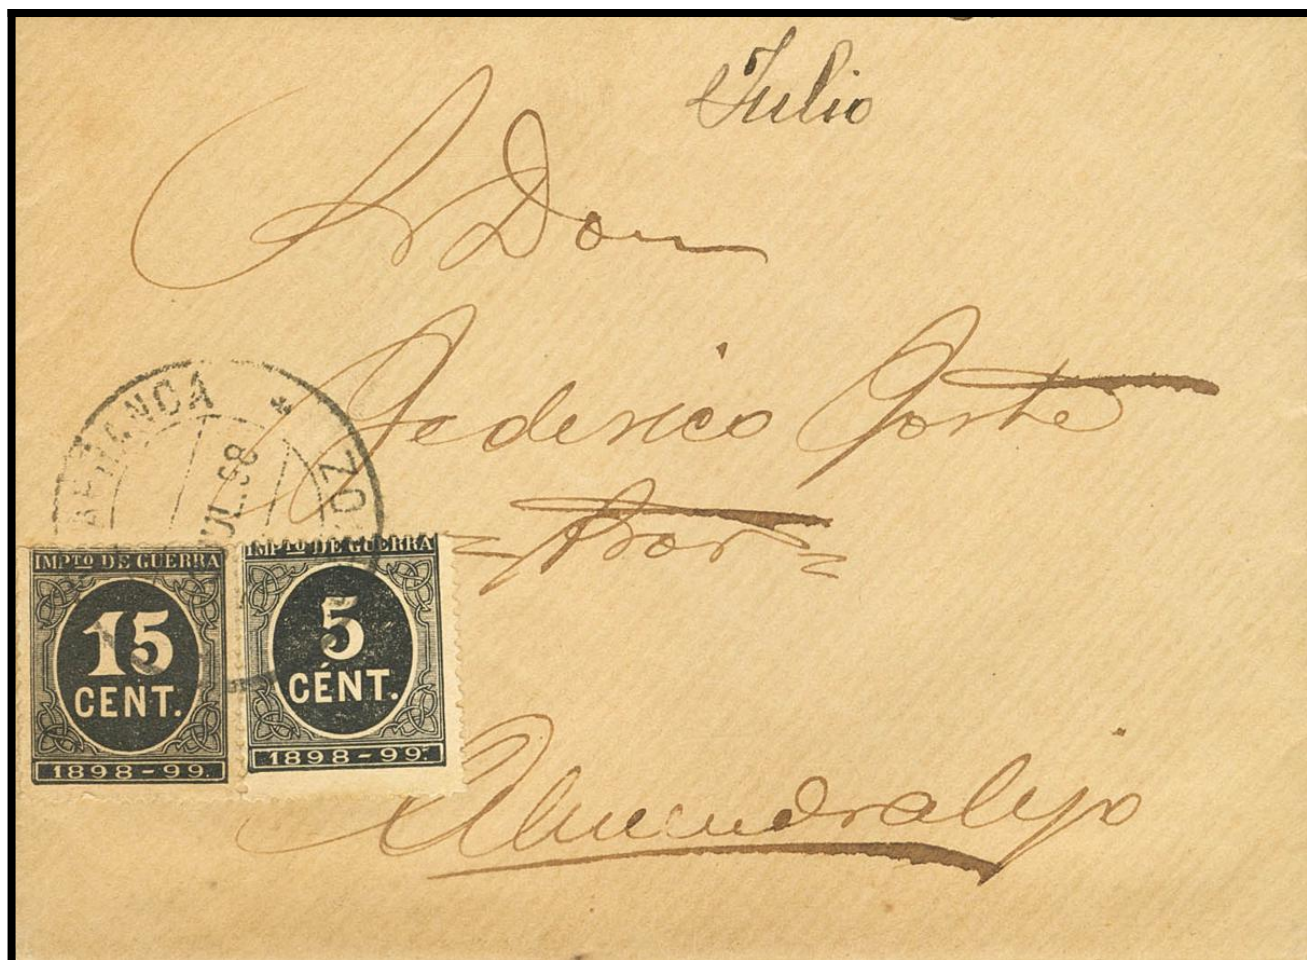 Julio
A Don
Federico
Almendralejo
JUL. 98
IMPTO DE GUERRA
15
CENT.
1898-99.
IMPTO DE GUERRA
5
CÉNT.
1898-99.